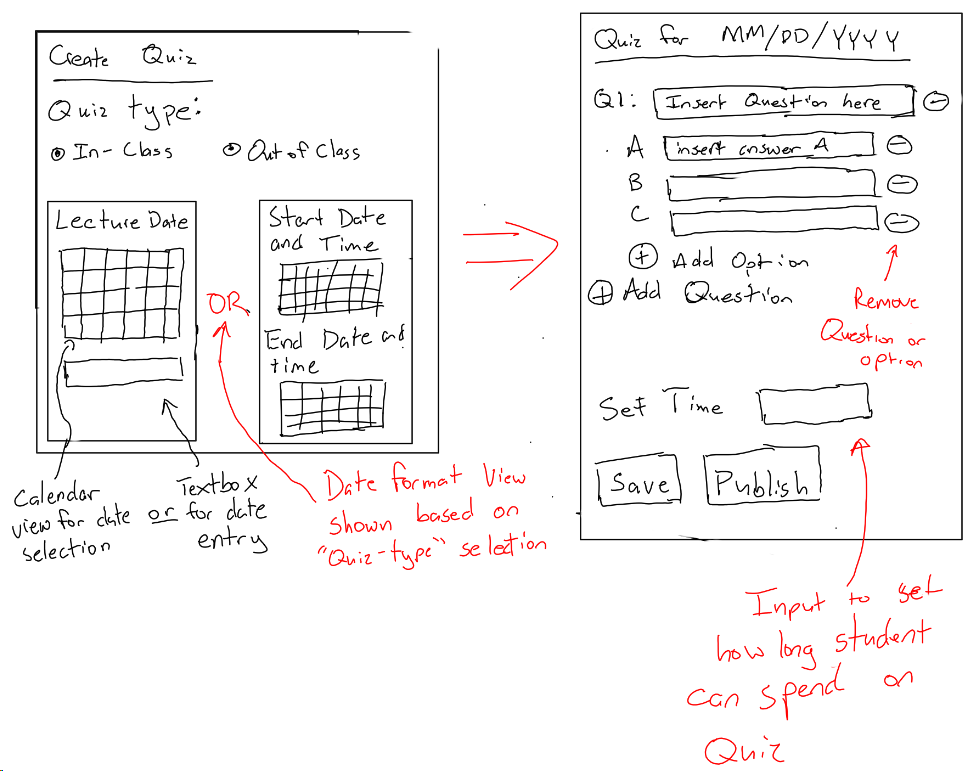 Create Quiz
Quiz type:
In-Class
Out of Class
Lecture Date
OR
Start Date
and Time
End Date and
time
Calendar
view for date
selection
or
Textbox
for date
entry
Date format View
shown based on
"Quiz-type" selection
Quiz for MM/DD/YYYY
Q1: Insert Question here
A insert answer A
B
C
+ Add Option
+ Add Question
Remove
Question or
option
Set Time
Save
Publish
Input to set
how long student
can spend on
Quiz